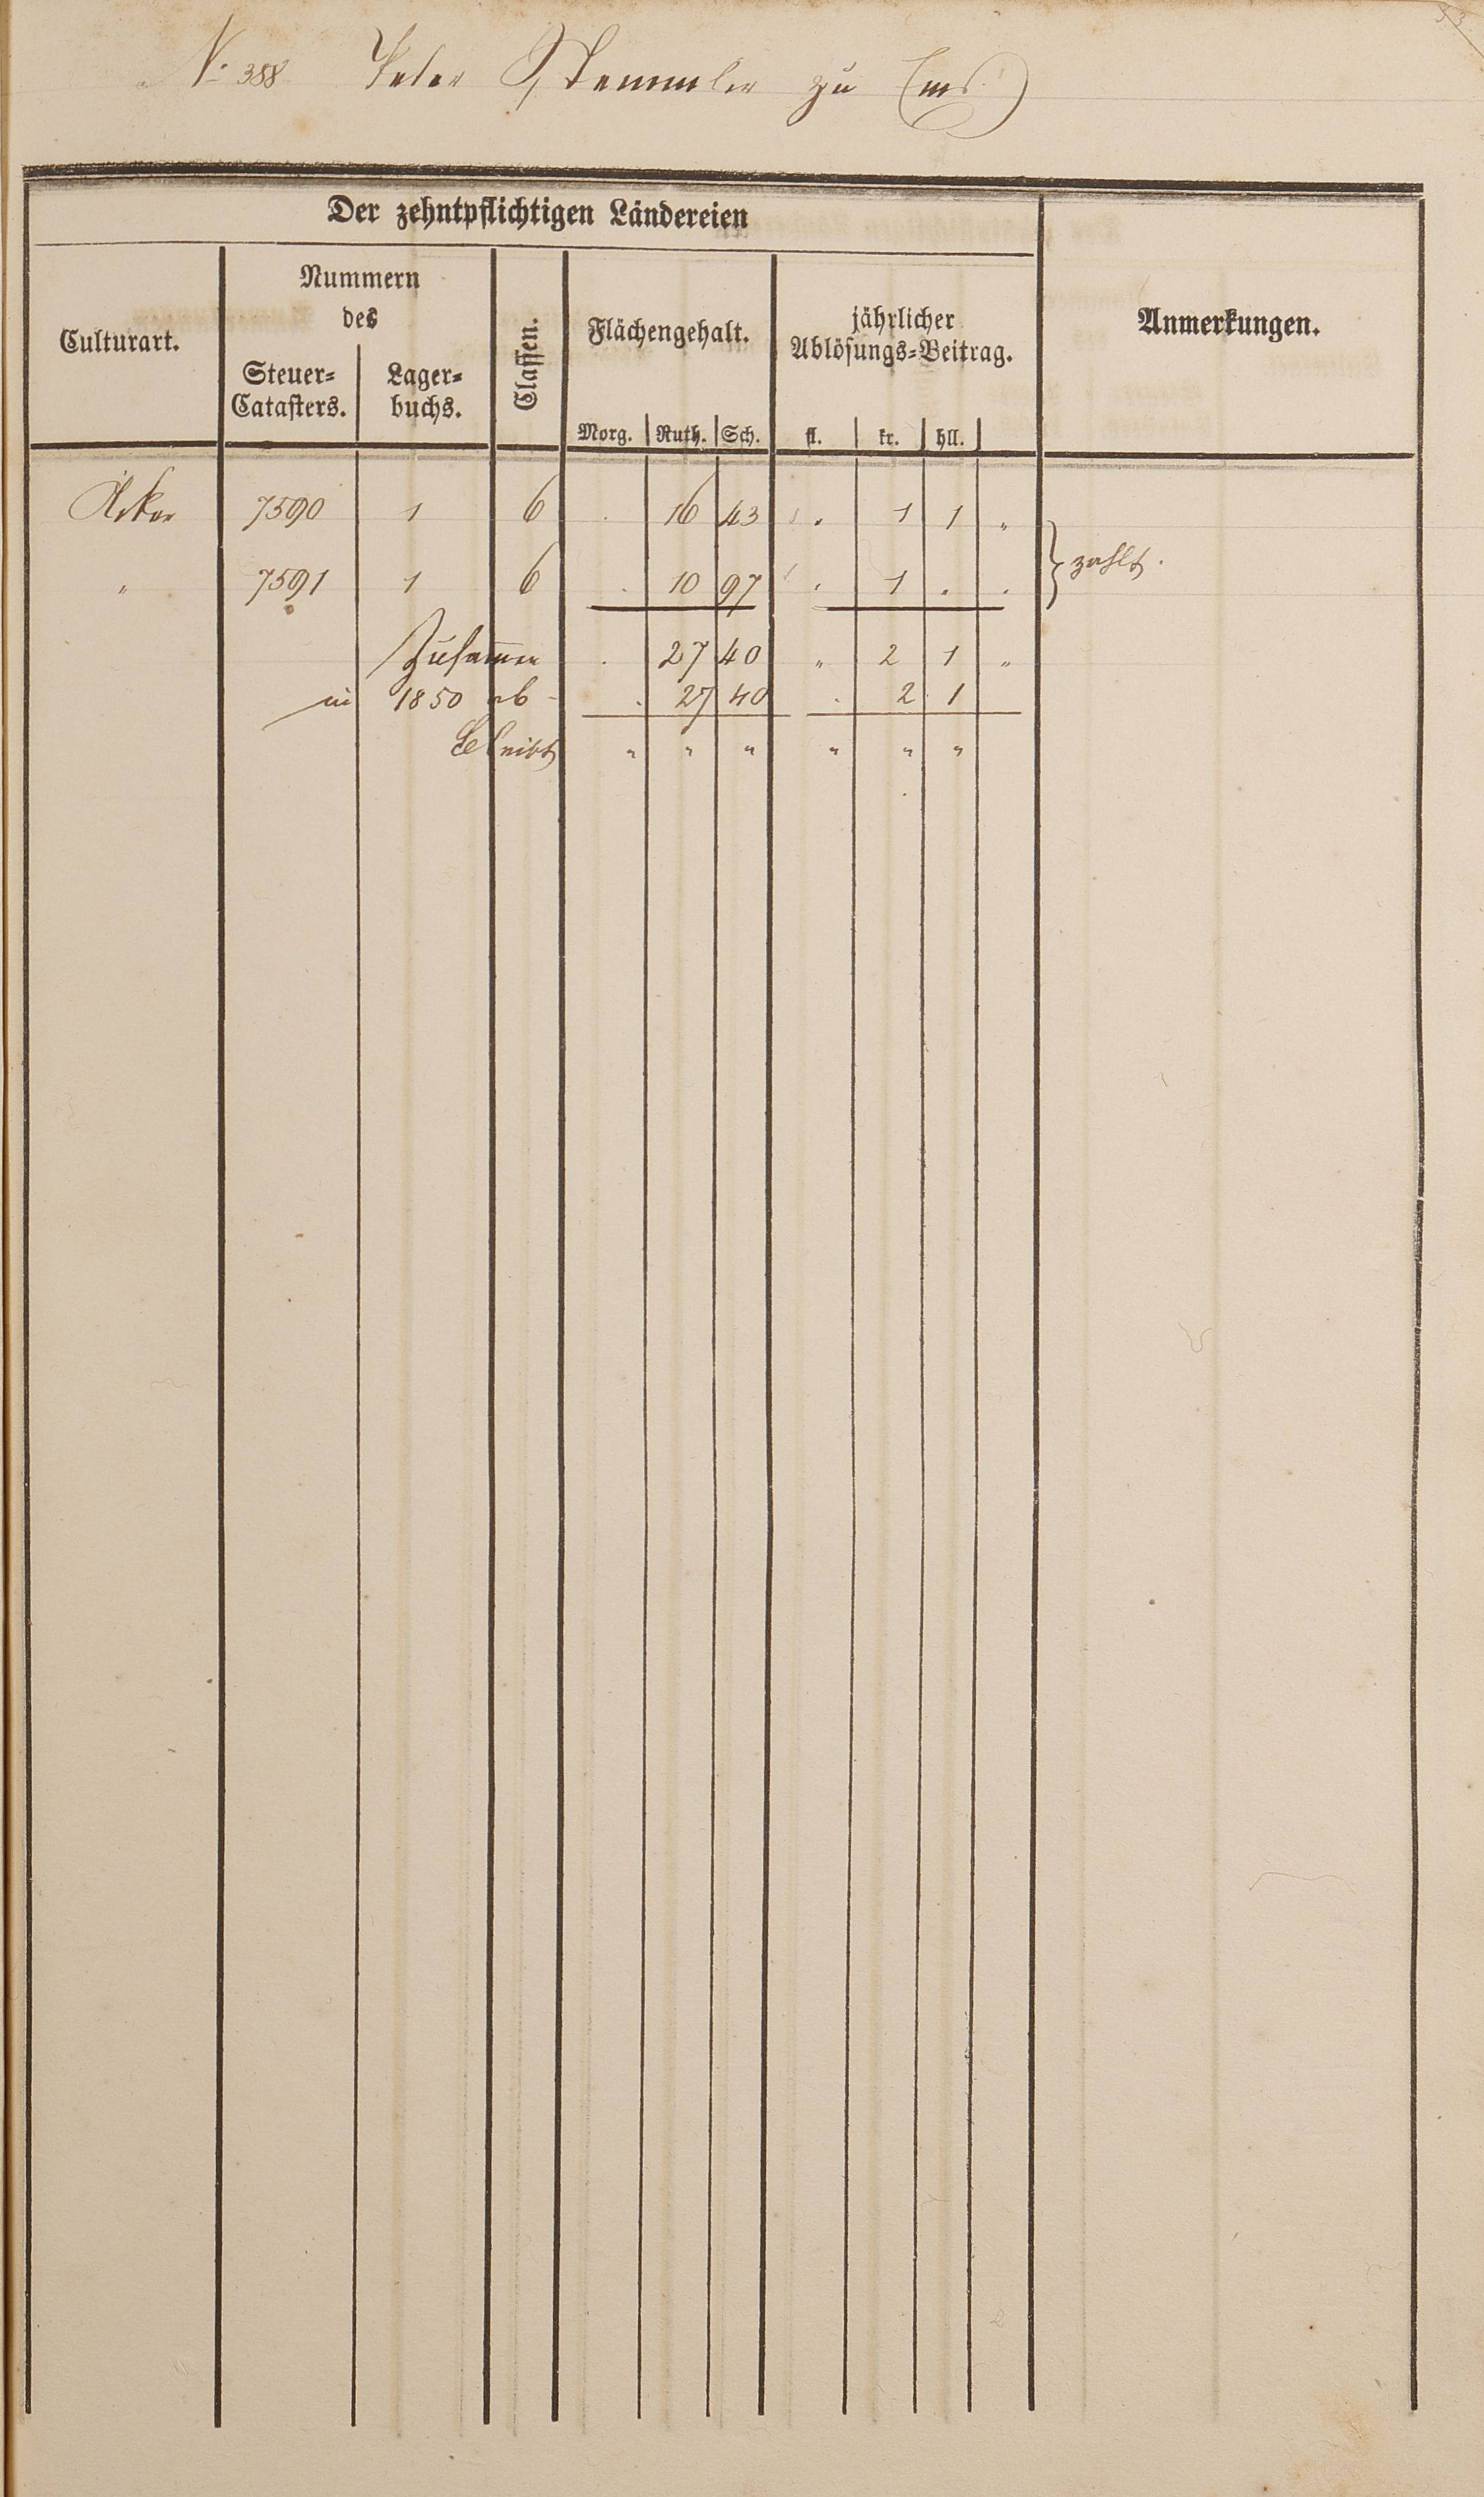 53
N. 388 Peter Stemmler zu Ems
Der zehntpflichtigen Ländereien
Culturart.
Nummern
des
Steuer-
Catasters.
Lager-
buchs.
Classen.
Flächengehalt.
Morg. Ruth. Sch.
jährlicher
Ablösungs-Beitrag.
fl. kr. hll.
Anmerkungen.
Acker 7590 1 6 . 16 43 . 1 1 "
" 7591 1 6 . 10 97 . 1 . .
} zahlt.
Zusamen . 27 40 " 2 1 "
in 1850 ab - . 27 40 . 2 1
Bleibt " " " " " "